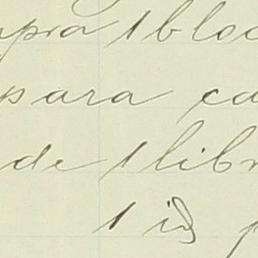 mpra 1 bloc
para ca
de 1 libr
1 id p